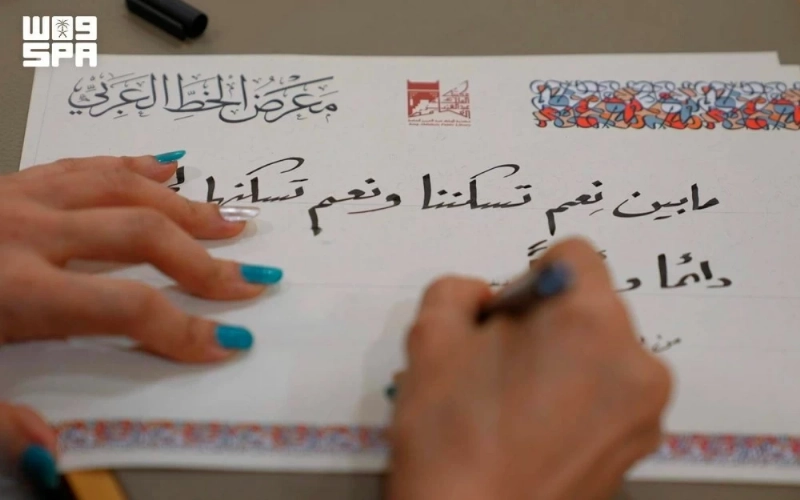 واس
SPA
معرض الخط العربي
مابين نِعم تسكننا ونعم تسكنها
دائما و
من